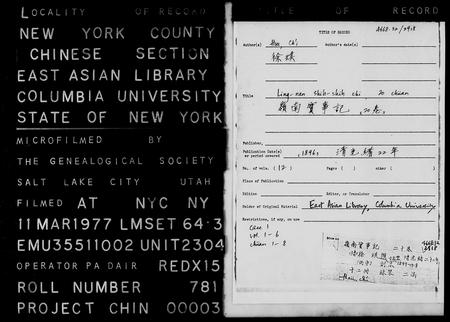 LOCALITY OF RECORD
NEW YORK COUNTY
CHINESE SECTION
EAST ASIAN LIBRARY
COLUMBIA UNIVERSITY
STATE OF NEW YORK
MICROFILMED BY
THE GENEALOGICAL SOCIETY
SALT LAKE CITY UTAH
FILMED AT NYC NY
11 MAR 1977 LMSET 64-3
EMU35511002 UNIT2304
OPERATOR PA DAIR REDX15
ROLL NUMBER 781
PROJECT CHIN 00003
TITLE OF RECORD
TITLE OF RECORD
Author(s) Hsu, Ch'i Author's date(s)
徐琪
Title Ling-nan shih-shih chi 20 chüan
嶺南實事記, 20卷,
Publisher,
Publication Date(s) or period covered ,1896, 清光緒22年
No. of vols. (12) Pages ( ) other ( )
Place of Publication
Edition Editor, or Translator
Holder of Original Material East Asian Library, Columbia University
Restrictions, if any, on use
Case 1
vol. 1-6
chüan 1-8
嶺南實事記 二十卷
十二册 二函